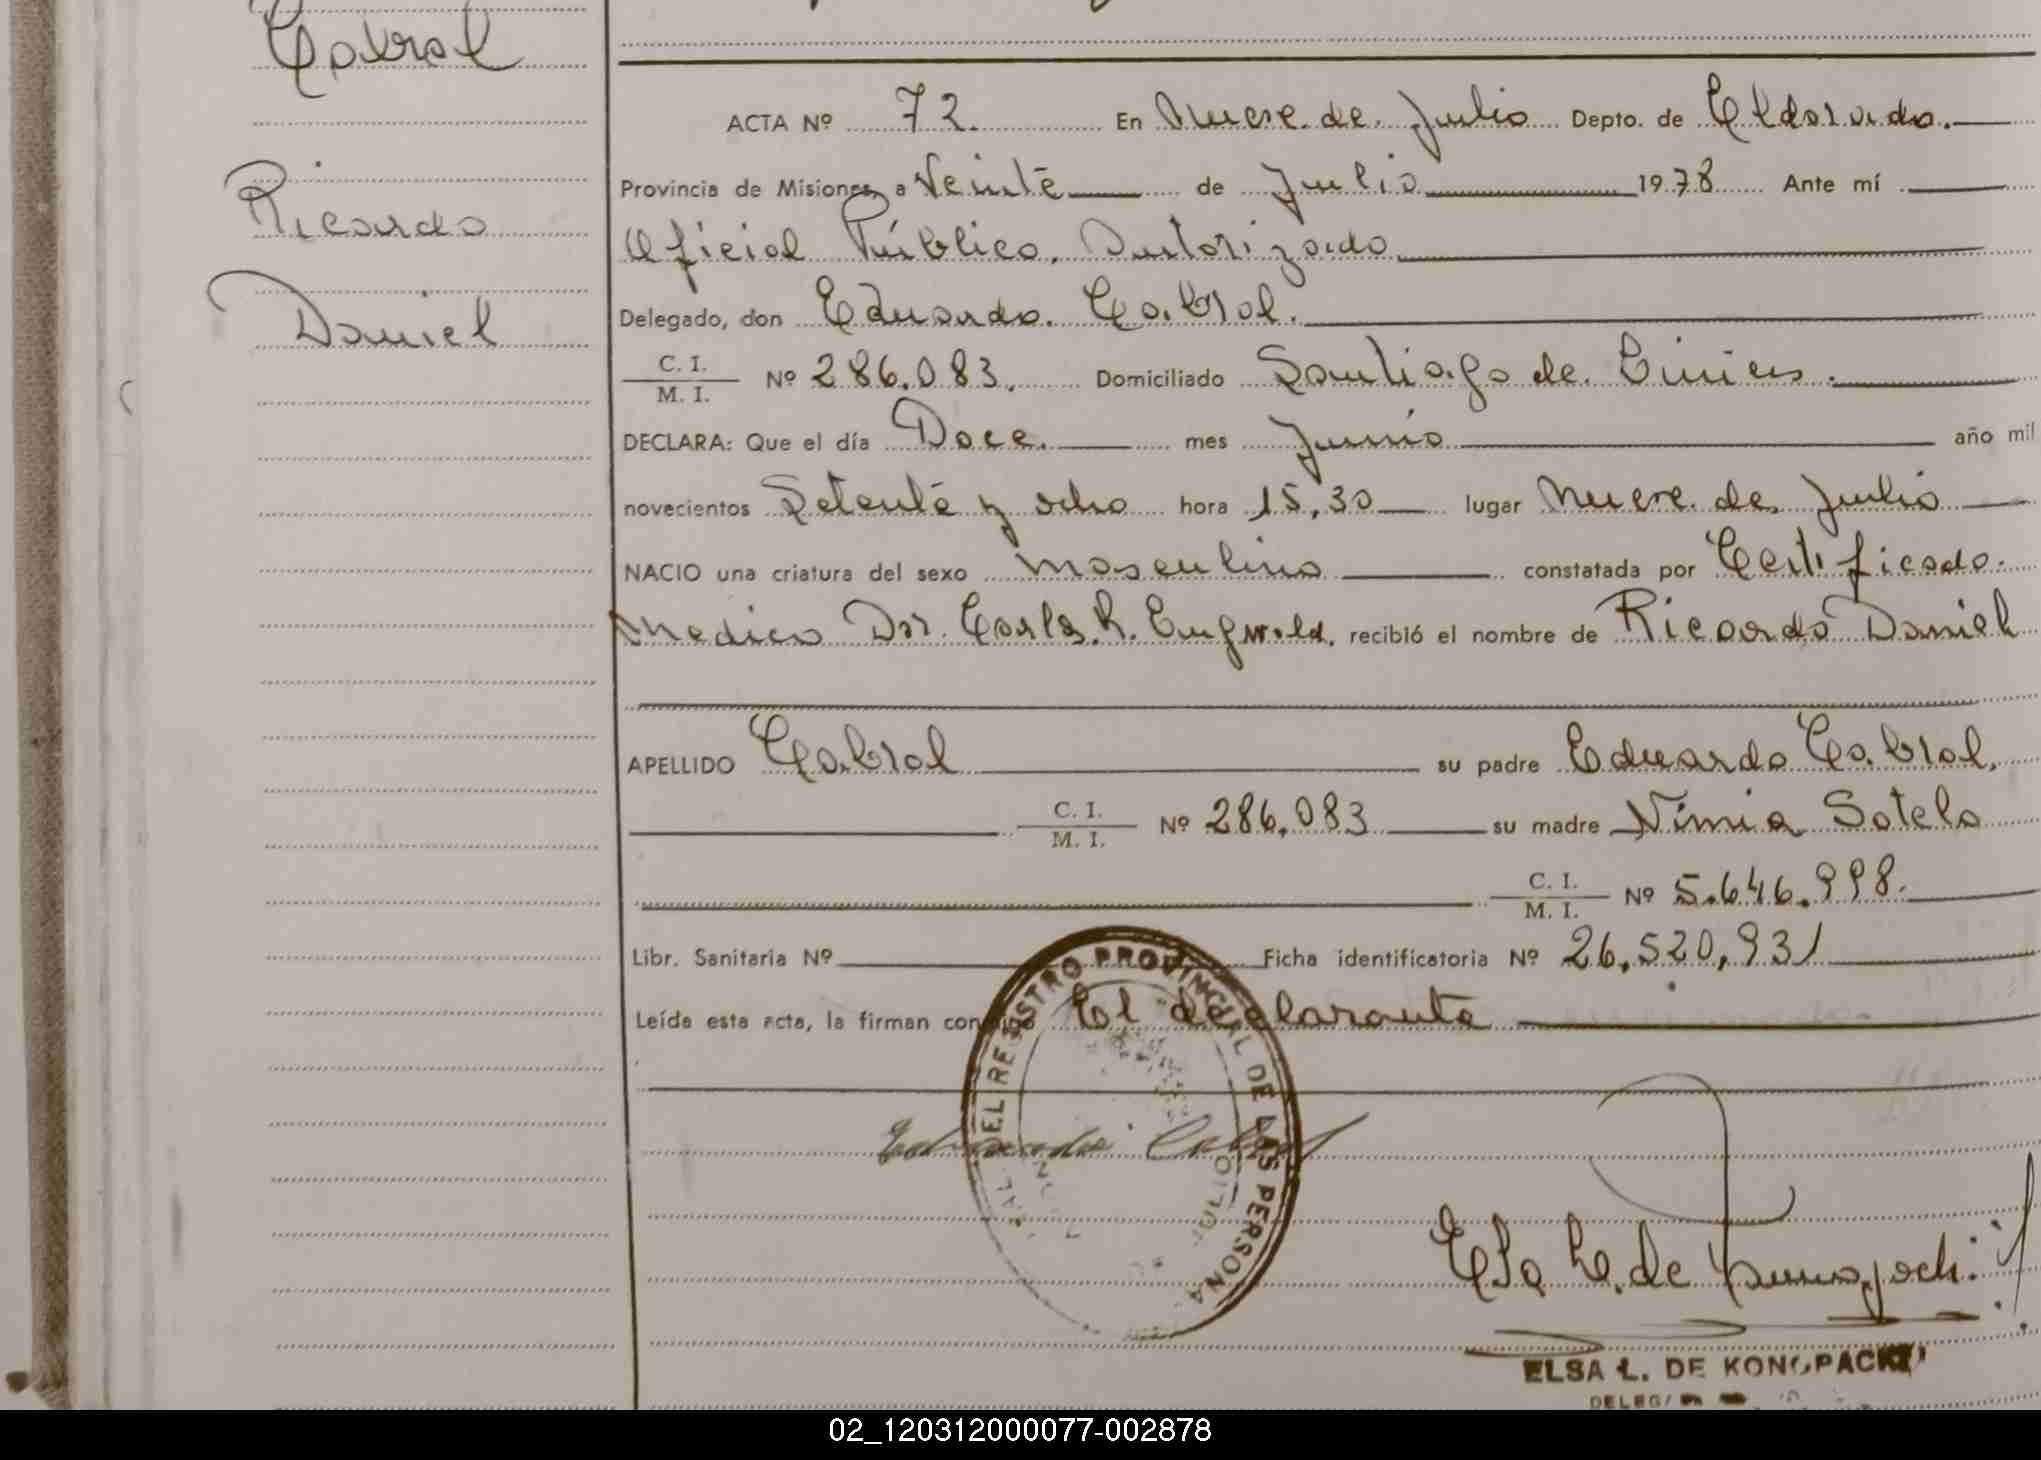 Cabral
Ricardo
Daniel
ACTA Nº 72. En Nueve de Julio Depto. de Eldorado.
Provincia de Misiones, a Veinte de Julio 1978 Ante mí
Oficial Público Autorizado
Delegado, don Eduardo Cabral.
C. I.
M. I. Nº 286.083. Domiciliado Santiago de Liniers.
DECLARA: Que el día Doce. mes Junio año mil
novecientos Setenta y ocho hora 15,30 lugar Nueve de Julio
NACIO una criatura del sexo masculino constatada por Certificado
Medico Dr. Carlos R. recibió el nombre de Ricardo Daniel
APELLIDO Cabral su padre Eduardo Cabral,
C. I.
M. I. Nº 286,083 su madre Nimia Sotelo
C. I.
M. I. Nº 5.646.998.
Libr. Sanitaria Nº Ficha identificatoria Nº 26,520,931
Leída esta acta, la firman conmigo El declarante
EL REGISTRO PROVINCIAL DE LAS PERSONAS
JULIO
Eduardo Cabral
Elsa L. de Konopacki
ELSA L. DE KONOPACKI
02_120312000077-002878